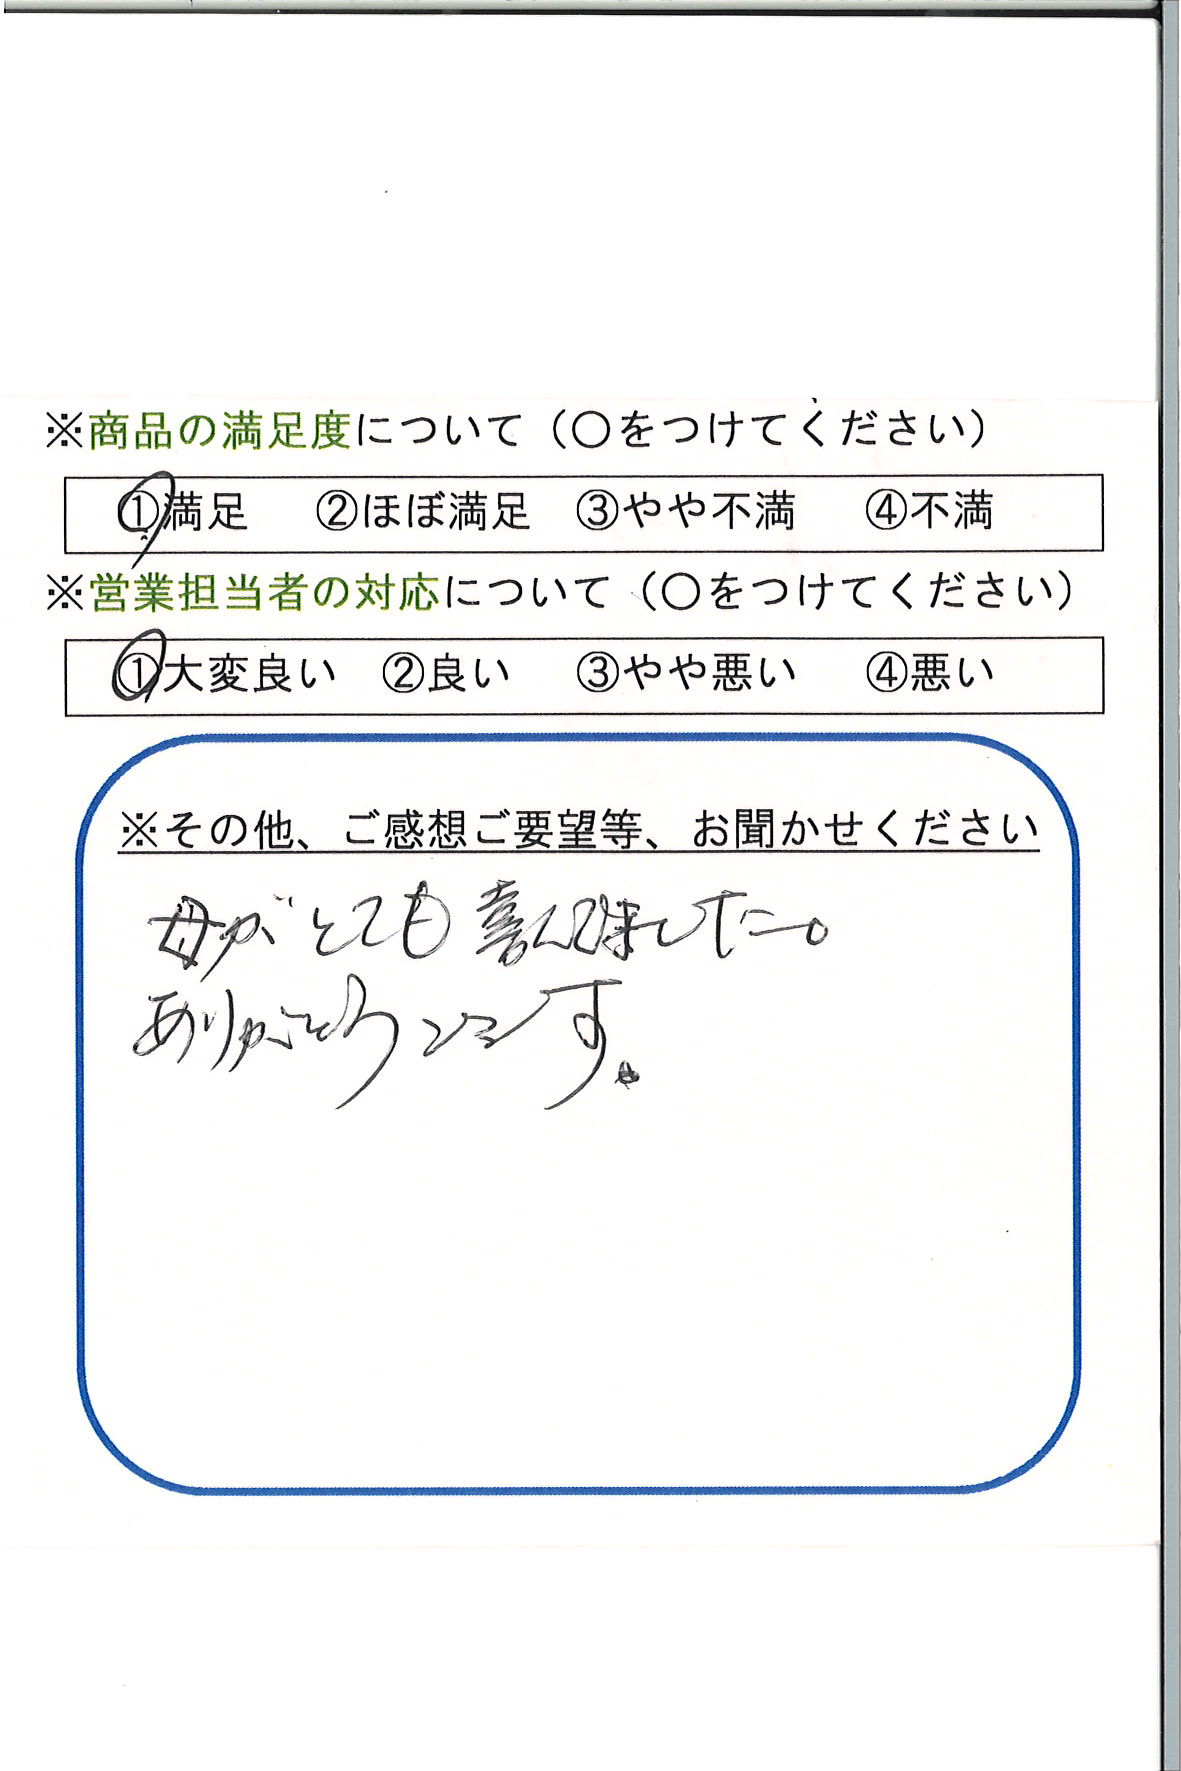 ※商品の満足度について（○をつけてください）
①満足 ②ほぼ満足 ③やや不満 ④不満
※営業担当者の対応について（○をつけてください）
①大変良い ②良い ③やや悪い ④悪い
※その他、ご感想ご要望等、お聞かせください
母がとても喜んでました。
ありがとうございます。